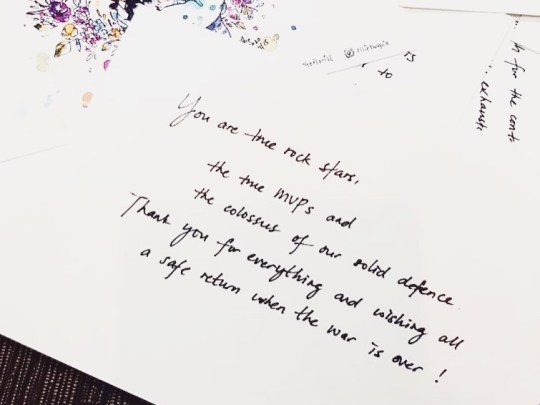 You are true rock stars,
the true MVPs and
the colossus of our solid defence.
Thank you for everything and wishing all
a safe return when the war is over !
to
for the